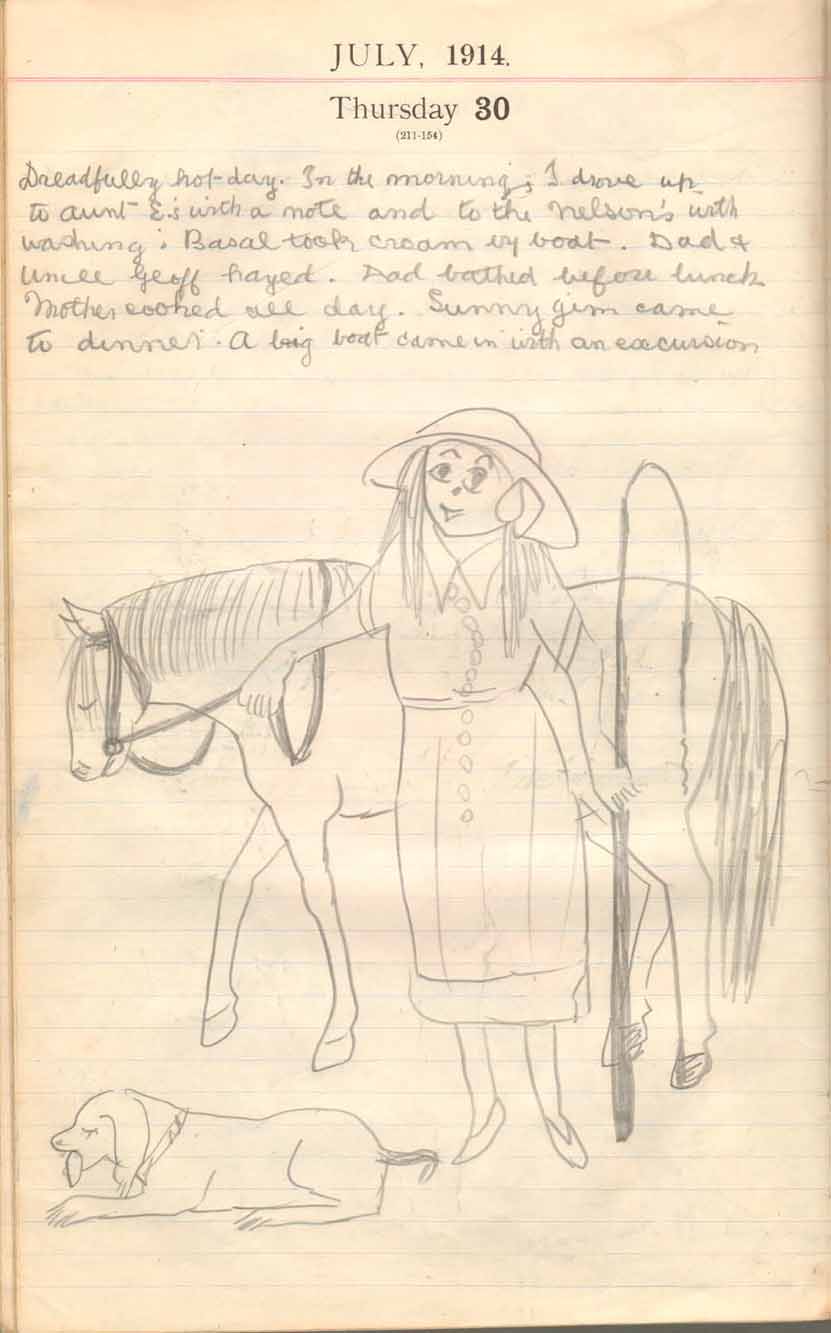 JULY, 1914.
Thursday 30
(211-154)
Dreadfully hot day. In the morning; I drove up
to aunt E.'s with a note and to the Nelson's with
washing; Basal took cream by boat. Dad &
Uncle Geoff hayed. Dad bathed before lunch
Mother cooked all day. Sunny Jim came
to dinner. A big boat came in with an excursion